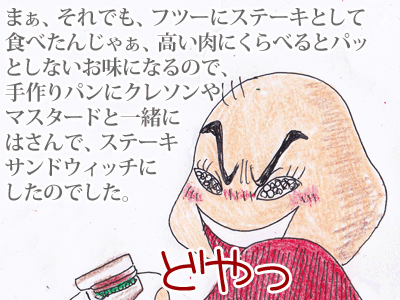 まぁ、それでも、フツーにステーキとして
食べたんじゃぁ、高い肉にくらべるとパッ
としないお味になるので、
手作りパンにクレソンや
マスタードと一緒に
はさんで、ステーキ
サンドウィッチに
したのでした。
どやっ